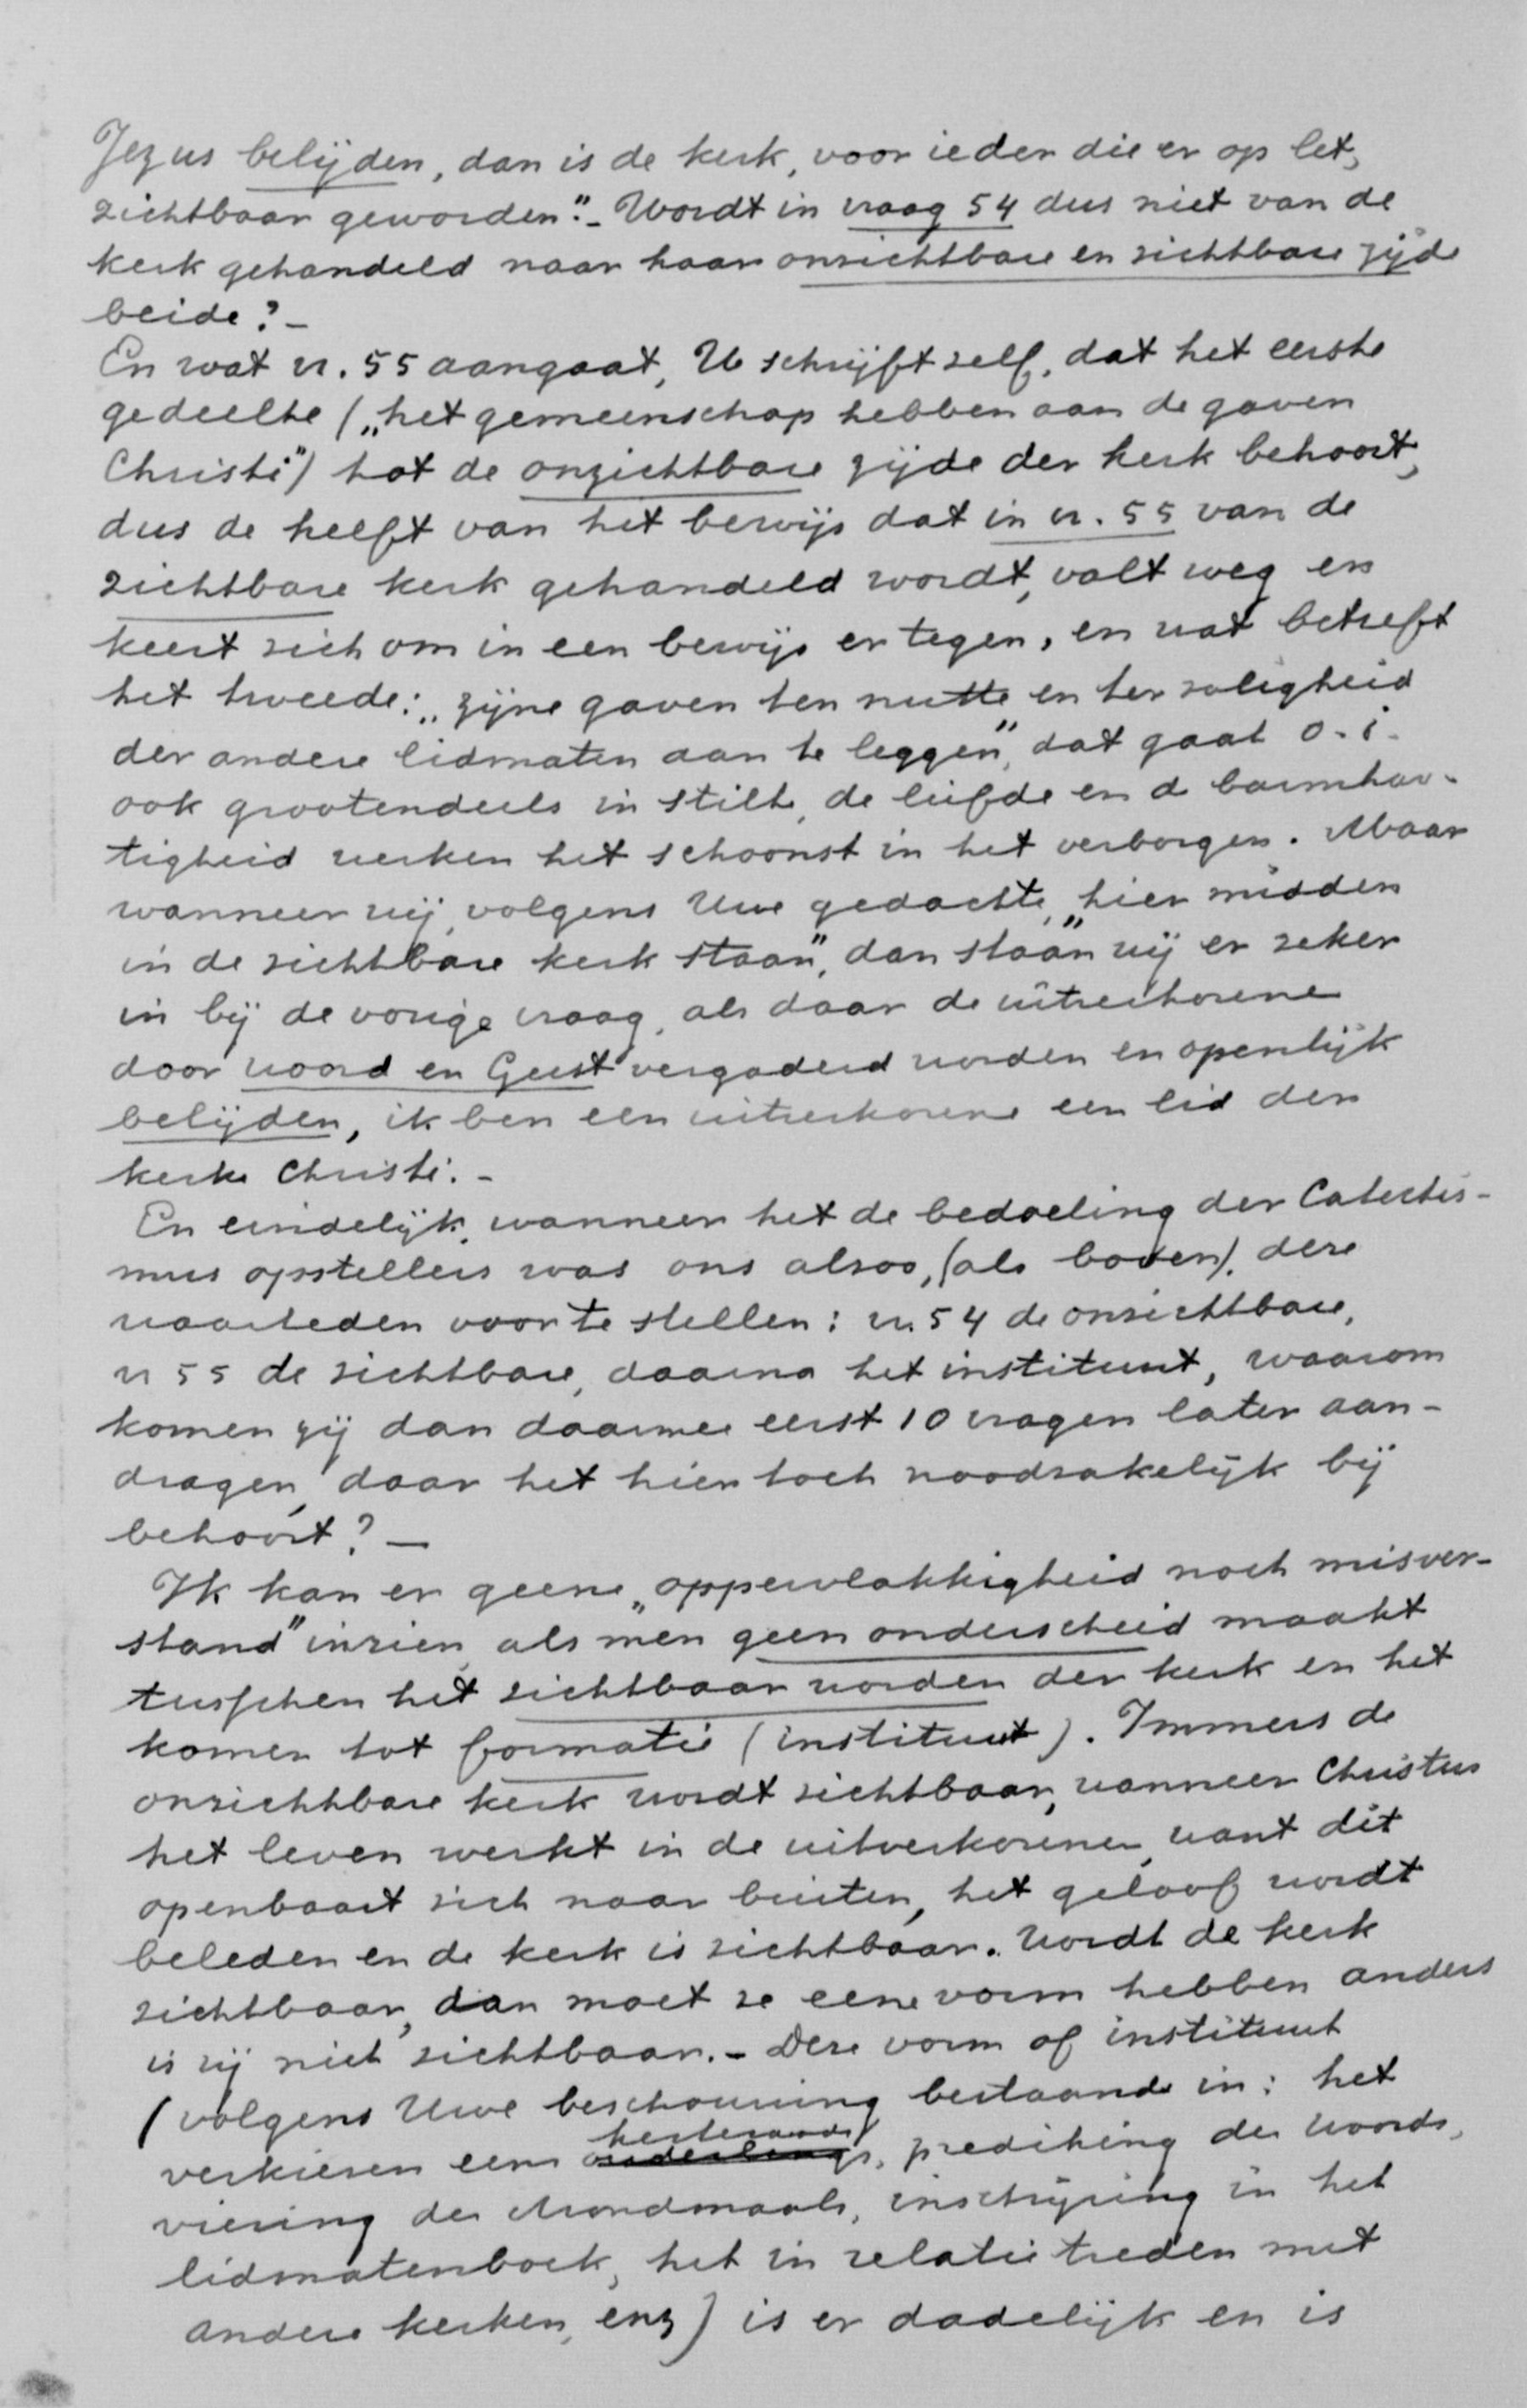 Jezus belijden, dan is de kerk, voor ieder die er op let,
zichtbaar geworden". - Wordt in vraag 54 dus niet van de
kerk gehandeld naar haar onzichtbare en zichtbare zijde
beide? -
En wat vr. 55 aangaat, U schrijft zelf, dat het eerste
gedeelte („het gemeenschap hebben aan de gaven
Christi") tot de onzichtbare zijde der kerk behoort,
dus de helft van het bewijs dat in vr. 55 van de
zichtbare kerk gehandeld wordt, valt weg en
keert zich om in een bewijs er tegen, en wat betreft
het tweede: „zijne gaven ten nutte en ter zaligheid
der andere lidmaten aan te leggen", dat gaat o.i.
ook grootendeels in stilte, de liefde en de barmhar-
tigheid werken het schoonst in het verborgen. Maar
wanneer wij, volgens Uwe gedachte, „hier midden
in de zichtbare kerk staan", dan staan wij er zeker
in bij de vorige vraag, als daar de uitverkorene
door woord en Geest vergaderd worden en openlijk
belijden, ik ben een uitverkorene een lid der
kerke Christi. -
En eindelijk, wanneer het de bedoeling der Catechis-
mus opstellers was ons alzoo, (als boven), deze
waarheden voor te stellen: vr. 54 de onzichtbare,
vr 55 de zichtbare, daarna het instituut, waarom
komen zij dan daarmee eerst 10 vragen later aan-
dragen, daar het hier toch noodzakelijk bij
behoort? -
Ik kan er geene „oppervlakkigheid noch misver-
stand" inzien, als men geen onderscheid maakt
tusschen het zichtbaar worden der kerk en het
komen tot formatie (instituut). Immers de
onzichtbare kerk wordt zichtbaar, wanneer Christus
het leven werkt in de uitverkorenen, want dit
openbaart zich naar buiten, het geloof wordt
beleden en de kerk is zichtbaar. Wordt de kerk
zichtbaar, dan moet ze eene vorm hebben anders
is zij niet zichtbaar. - Deze vorm of instituut
(volgens Uwe beschouwing bestaande in: het
verkiezen eens kerkeraads, prediking des woords,
viering des Avondmaals, inschrijving in het
lidmatenboek, het in relatie treden met
andere kerken, enz) is er dadelijk en is